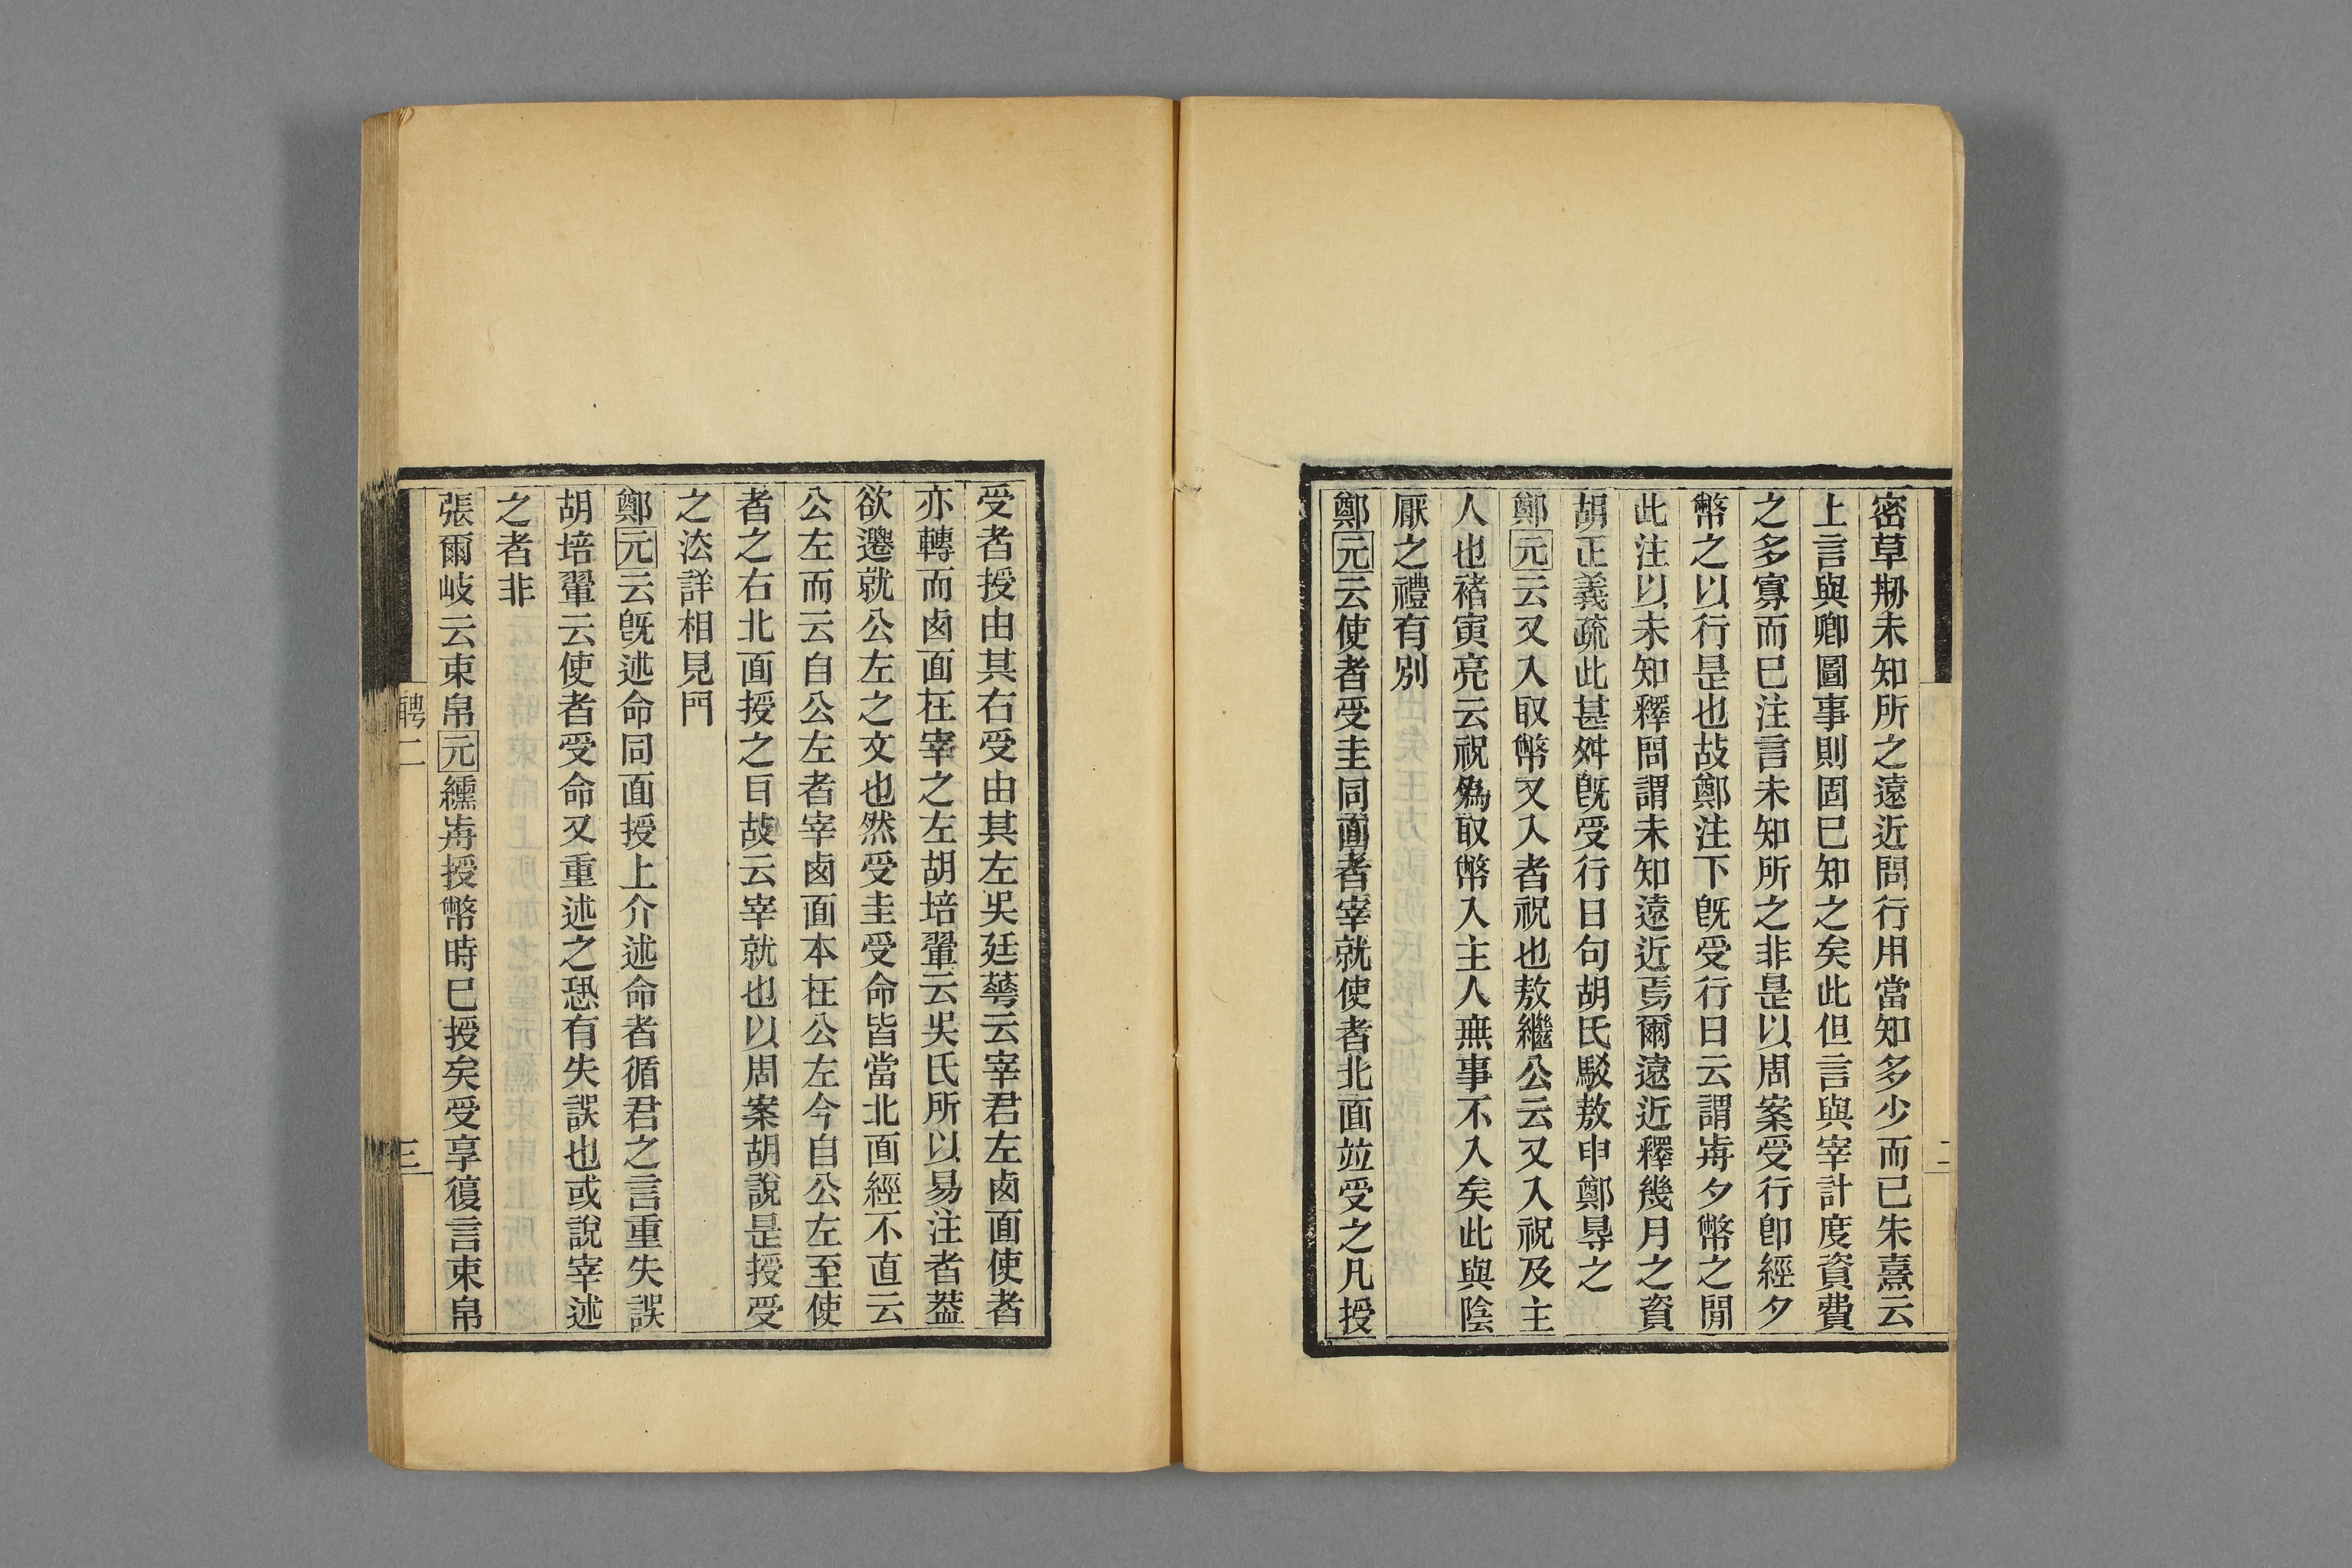 密草刱未知所之遠近問行用當知多少而已朱熹云
上言與卿圖事則固已知之矣此但言與宰計度資費
之多寡而已注言未知所之非是以周案受行卽經夕
幣之以行是也故鄭注下旣受行日云謂歬夕幣之閒
此注以未知釋問謂未知遠近焉爾遠近釋幾月之資
胡正義疏此甚舛旣受行日句胡氏駁敖申鄭㝵之
鄭元云又入取幣又入者祝也敖繼公云又入祝及主
人也褚寅亮云祝爲取幣入主人無事不入矣此與陰
厭之禮有別
鄭元云使者受圭同面者宰就使者北面竝受之凡授
受者授由其右受由其左吳廷華云宰君左鹵面使者
亦轉而鹵面在宰之左胡培翬云吳氏所以易注者蓋
欲遷就公左之文也然受圭受命皆當北面經不直云
公左而云自公左者宰鹵面本在公左今自公左至使
者之右北面授之目故云宰就也以周案胡說是授受
之法詳相見門
鄭元云旣述命同面授上介述命者循君之言重失誤
胡培翬云使者受命又重述之恐有失誤也或說宰述
之者非
張爾岐云束帛元纁歬授幣時已授矣受享復言束帛
聘二
三